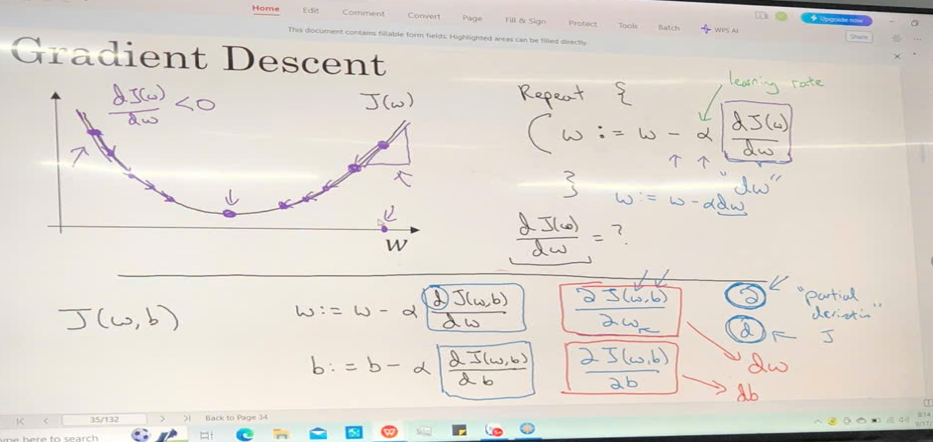 Home Edit Comment Convert Page Fill & Sign Protect Tools Batch WPS AI Upgrade now
This document contains fillable form fields. Highlighted areas can be filled directly
Share
Gradient Descent
dJ(w)/dw < 0
J(w)
w
learning rate
Repeat {
w := w - α dJ(w)/dw
"dw"
}
w := w - αdw
dJ(w)/dw = ?
J(w,b)
w := w - α dJ(w,b)/dw
∂J(w,b)/∂w
∂ "partial
d J
dw
b := b - α dJ(w,b)/db
∂J(w,b)/∂b
db
35/132 Back to Page 34
here to search